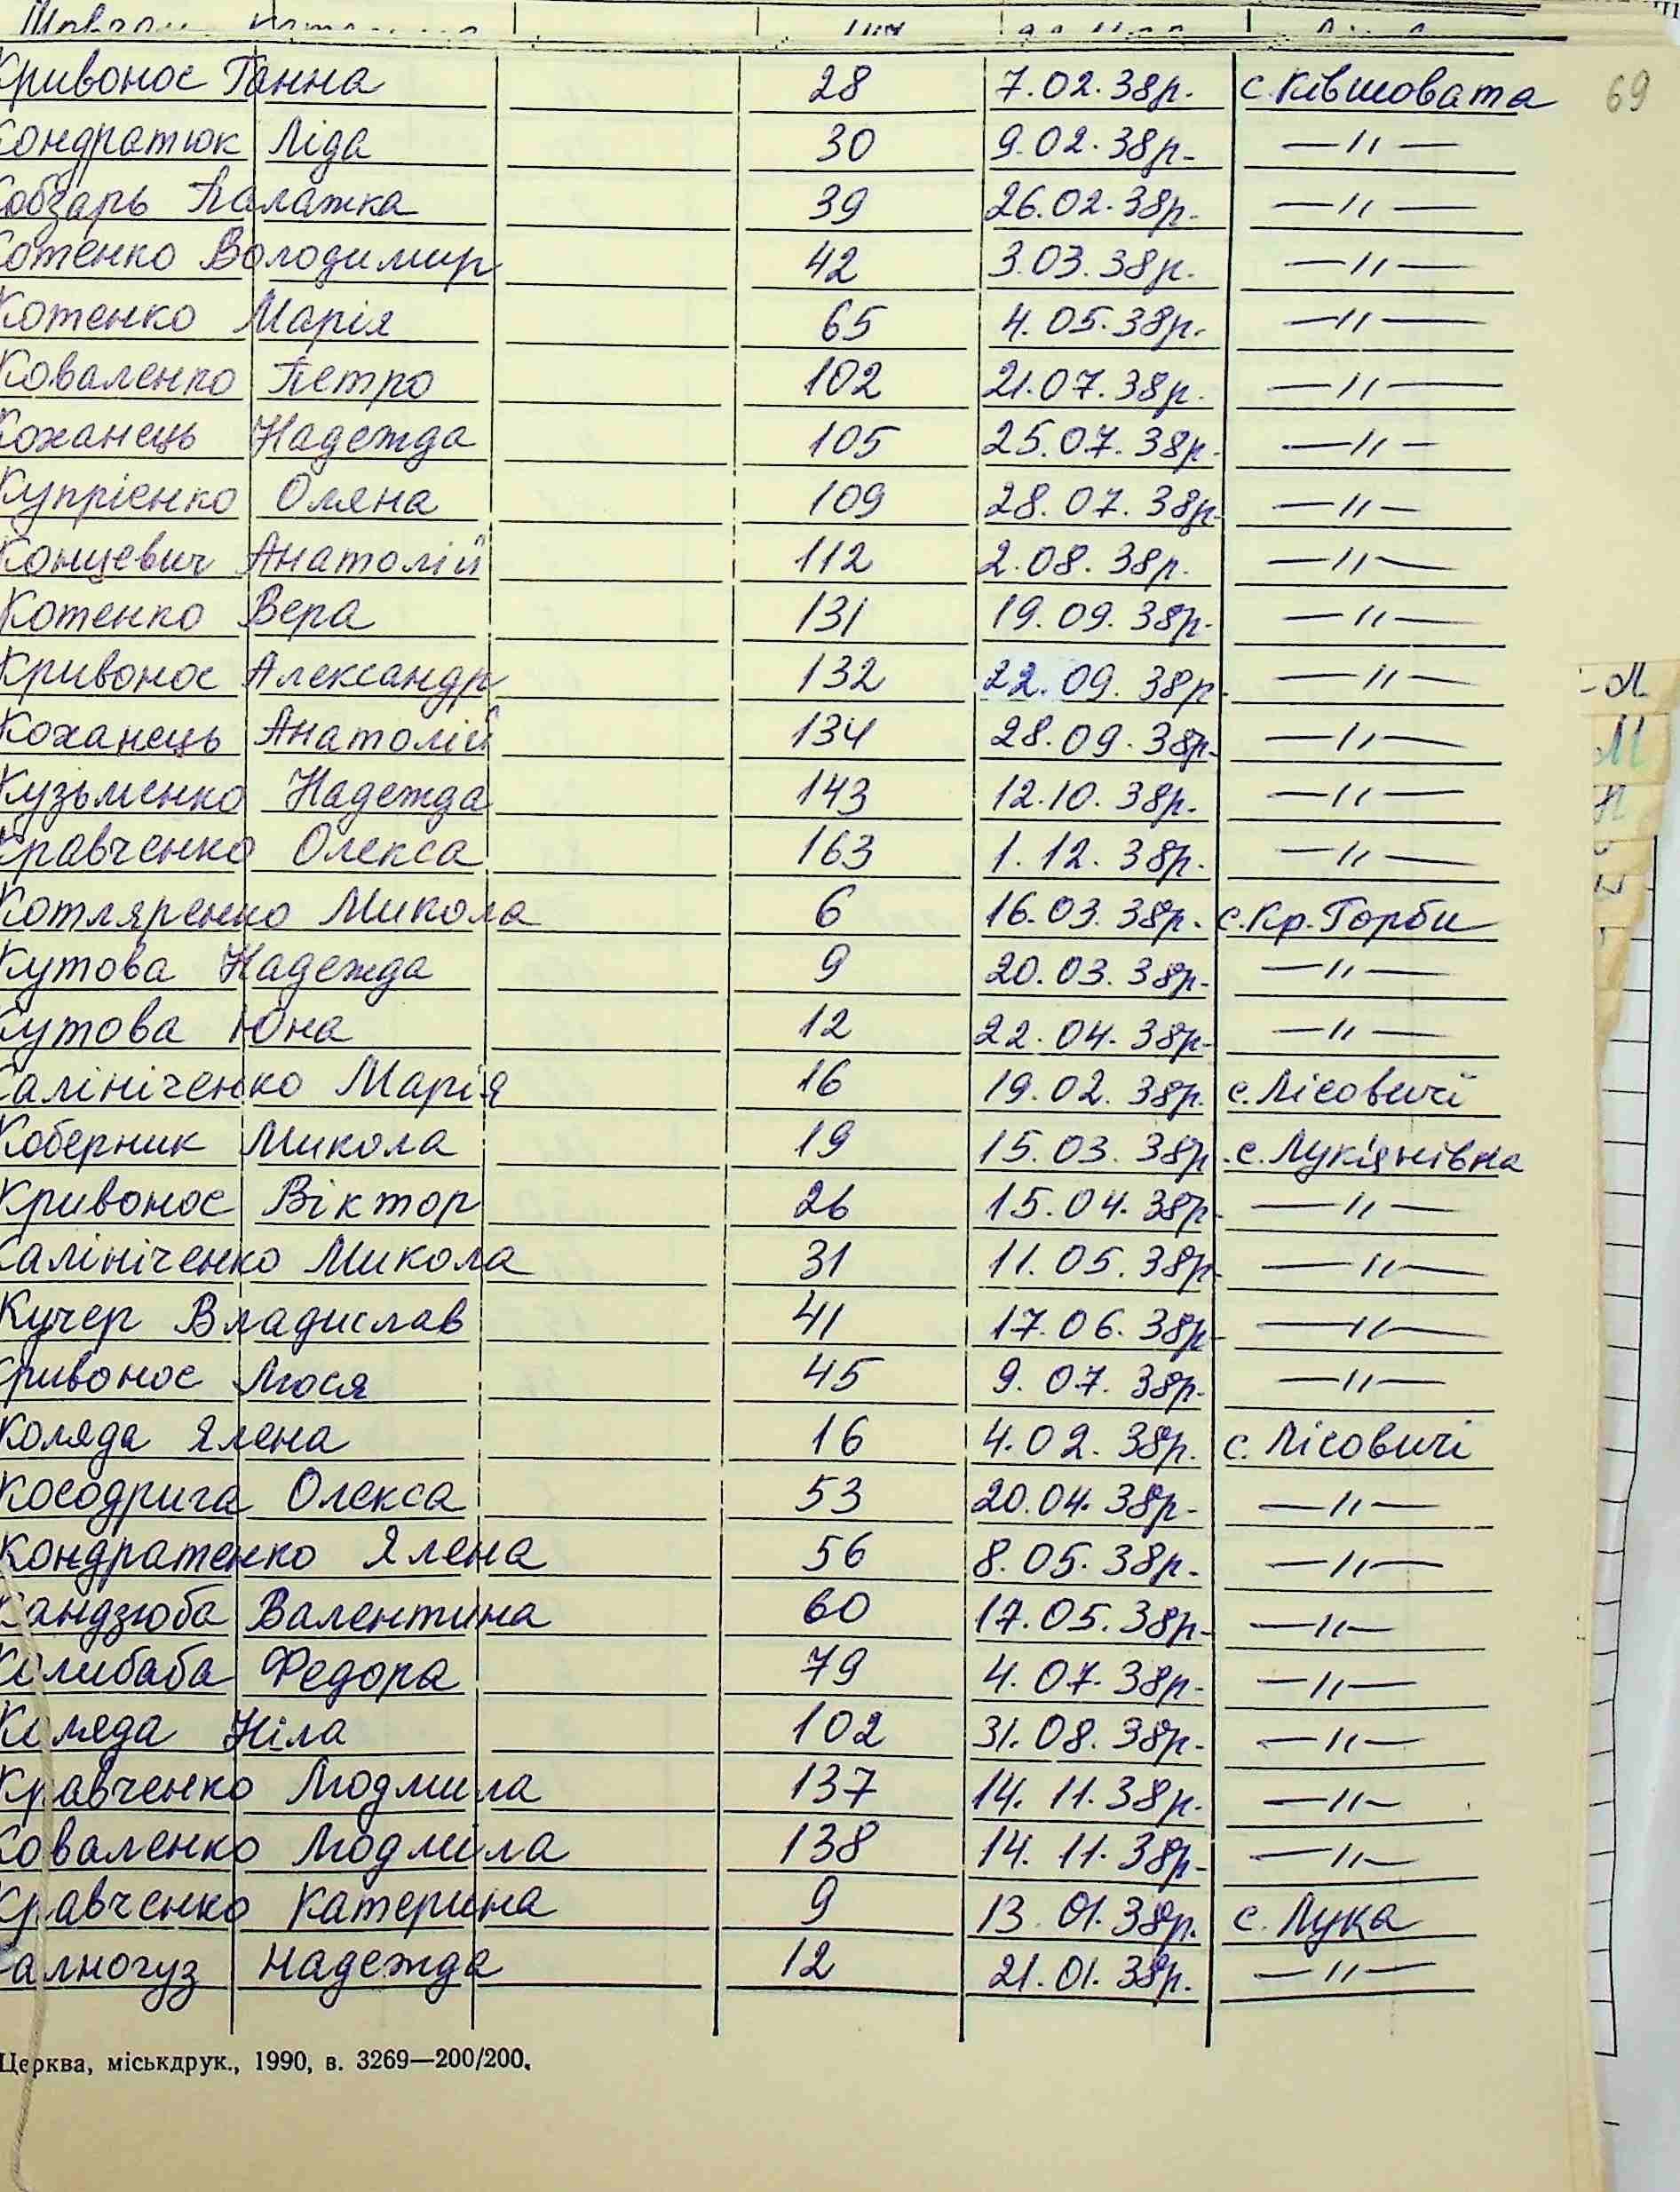 Кривонос Ганна 28 7.02.38р. с. Ківшовата 69
Кондратюк Ліда 30 9.02.38р. —"—
Кобзарь Палажка 39 26.02.38р. —"—
Котенко Володимир 42 3.03.38р. —"—
Котенко Марія 65 4.05.38р. —"—
Коваленко Петро 102 21.07.38р. —"—
Коханець Надежда 105 25.07.38р. —"—
Купрієнко Оляна 109 28.07.38р. —"—
Концевич Анатолій 112 2.08.38р. —"—
Котенко Вера 131 19.09.38р. —"—
Кривонос Александр 132 22.09.38р. —"—
Коханець Анатолій 134 28.09.38р. —"—
Кузьменко Надежда 143 12.10.38р. —"—
Кравченко Олекса 163 1.12.38р. —"—
Котляренко Микола 6 16.03.38р. с. Кр. Горби
Кутова Надежда 9 20.03.38р. —"—
Кутова Юна 12 22.04.38р. —"—
Калініченко Марія 16 19.02.38р. с. Лісовичі
Коберник Микола 19 15.03.38р. с. Лук'янівка
Кривонос Віктор 26 15.04.38р. —"—
Калініченко Микола 31 11.05.38р. —"—
Кучер Владислав 41 17.06.38р. —"—
Кривонос Люся 45 9.07.38р. —"—
Коляда Ялена 16 4.02.38р. с. Лісовичі
Косодрига Олекса 53 20.04.38р. —"—
Кондратенко Ялена 56 8.05.38р. —"—
Кандзюба Валентина 60 17.05.38р. —"—
Колибаба Федора 79 4.07.38р. —"—
Коляда Ніла 102 31.08.38р. —"—
Кравченко Людмила 137 14.11.38р. —"—
Коваленко Людмила 138 14.11.38р. —"—
Кравченко Катерина 9 13.01.38р. с. Лука
алногуз Надежда 12 21.01.38р. —"—
Церква, міськдрук., 1990, в. 3269—200/200.